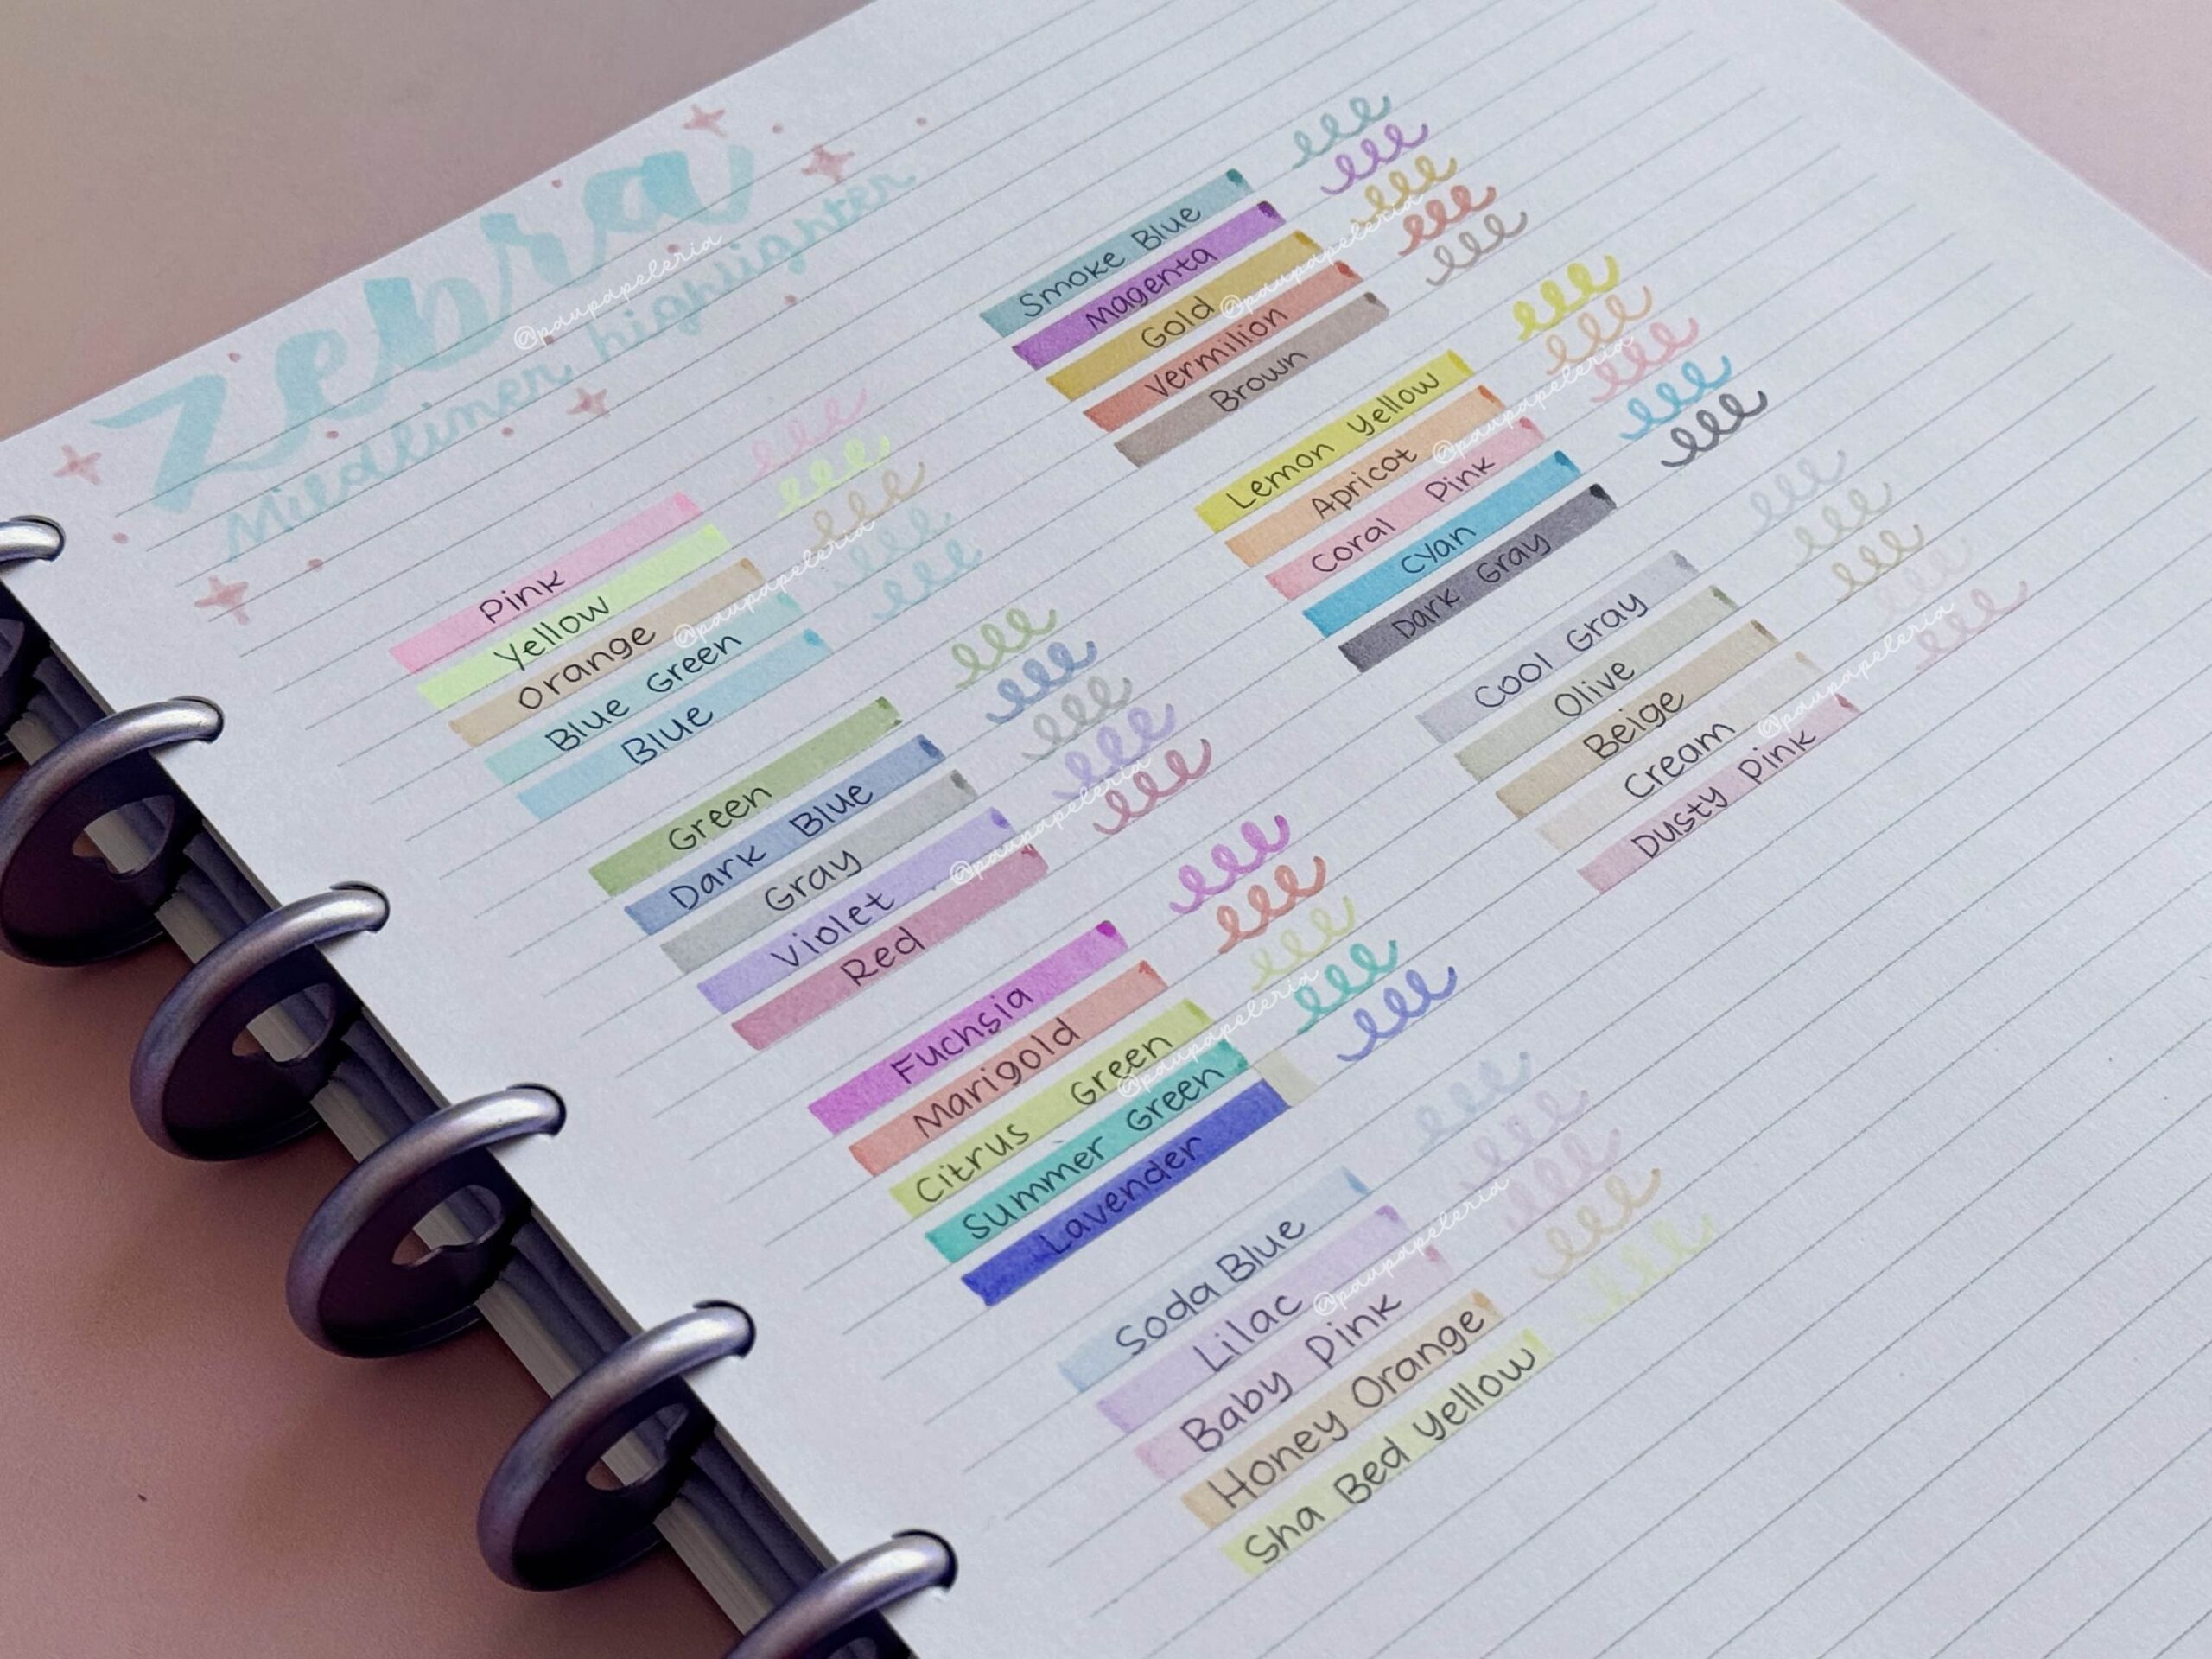 Zebra
Mildliner highlighter
@paupapeleria
Pink
Yellow
Orange
Blue Green
Blue
@paupapeleria
Green
Dark Blue
Gray
Violet
Red
@paupapeleria
Fuchsia
Marigold
Citrus Green
Summer Green
Lavender
@paupapeleria
Soda Blue
Lilac
Baby Pink
Honey Orange
Sha Bed Yellow
@paupapeleria
Smoke Blue
Magenta
Gold
Vermilion
Brown
@paupapeleria
Lemon Yellow
Apricot
Coral Pink
Cyan
Dark Gray
@paupapeleria
Cool Gray
Olive
Beige
Cream
Dusty Pink
@paupapeleria